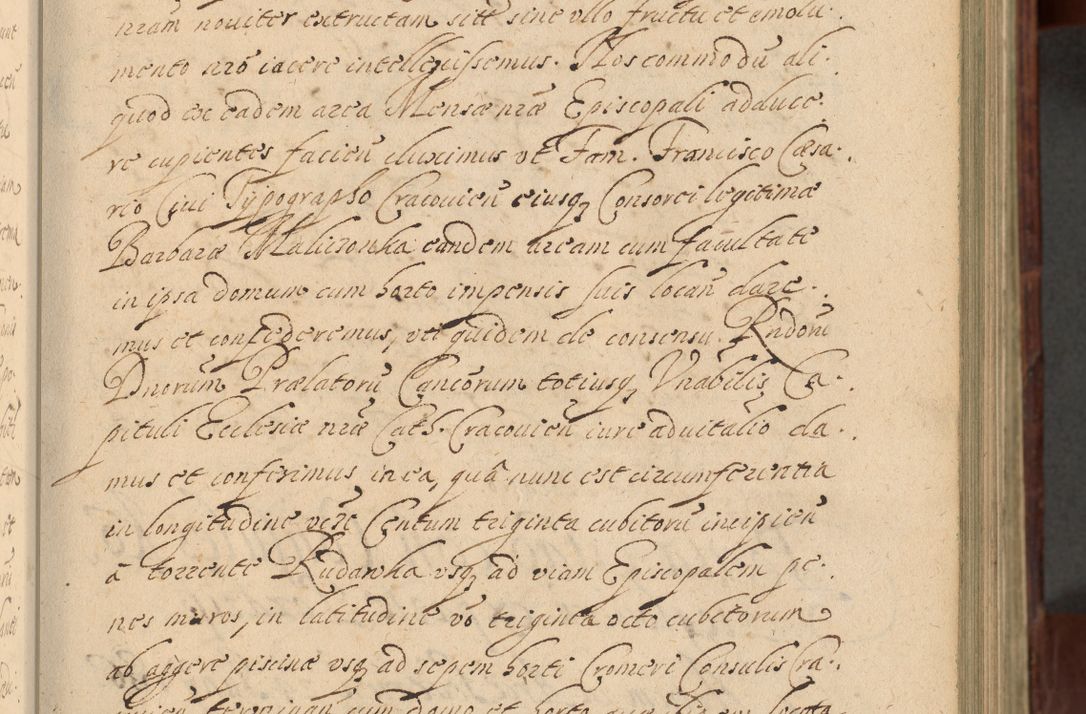 nram noviter extructam sitt sine vllo fructu et emolu.
mento nro iacere intellexissemus. Nos commodũ ali.
quod ex eadem area Mensæ nræ Episcopali adduce.
re cupientes facien duximus vt Fam. Francisco Cæsa.
rio Ciui Typographo Cracouien eiusq Consorti legitimæ
Barbaræ Maliczonka eandem aream cum facultate
in ipsa domum cum horto impensis suis locan dare.
mus et confederemus, vti quidem de consensu Rndorũ
Dnorum Prælatorũ Cancorum totiusq Vnabilis Ca.
pituli Ecclesiæ nræ Cath. Cracouien iure aduitalio da.
mus et conferimus in ea, quã nunc est circumferentia
in longitudine vere Centum triginta cubitorũ incipien
ã torrente Rudawka vsq ad viam Episcopalem pe.
nes muros, in latitudine vo triginta octo cubitorum
ab aggere piscinæ vsq ad sepem horti Cromeri Consulis Cra.